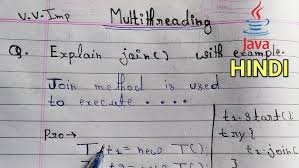 V.V.Imp
Multithreading
Java
HINDI
Q. Explain join() with example.
Join method is used
to execute . . . .
Pro →
T t1 = new T();
t1.start();
try{
t1.join(